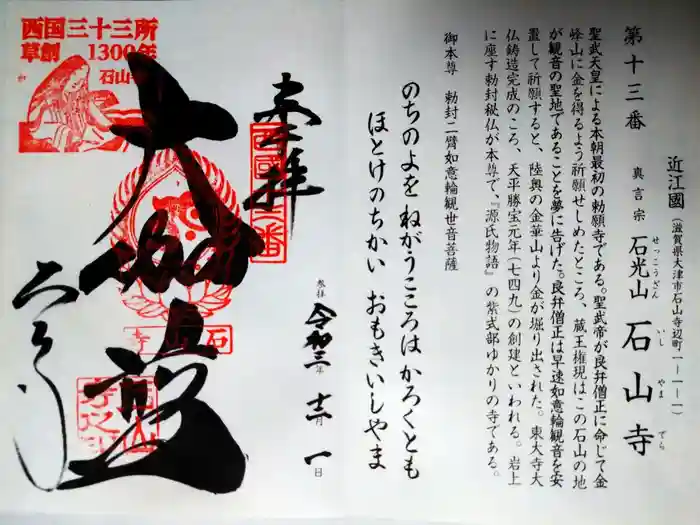 第十三番
近江國(滋賀県大津市石山寺辺町一ー一ー一)
真言宗 石光山 石山寺
せっこうざん いし やま でら
聖武天皇による本朝最初の勅願寺である。聖武帝が良弁僧正に命じて金
峰山に金を得るよう祈願せしめたところ、蔵王権現はこの石山の地
が観音の聖地であることを夢に告げた。良弁僧正は早速如意輪観音を安
置して祈願すると、陸奥の金華山より金が堀り出された。東大寺大
仏鋳造完成のころ、天平勝宝元年(七四九)の創建といわれる。岩上
に座す勅封秘仏が本尊で、『源氏物語』の紫式部ゆかりの寺である。
御本尊 勅封二臂如意輪観世音菩薩
のちのよを ねがうこころはかろくとも
ほとけのちかい おもきいしやま
参拝 令和三年 十二月 一日
奉拝
大伽藍
石山寺
西国三十三所
草創 1300年
石山寺